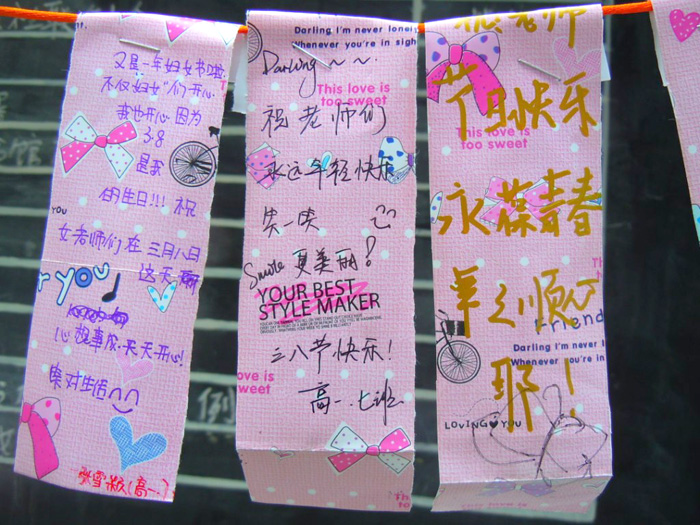 又是一年妇女节啦
不仅妇女们开心
我也开心因为
3.8
是我
的生日!!! 祝
女老师们在三月八日
这天
心想事成.天天开心!
笑对生活
YOU
r you
Darling, I'm never lonely
Whenever you're in sigh
Darling~~
This love is
too sweet
祝老师们
永远年轻快乐
笑一笑
Smile 更美丽?
YOUR BEST
STYLE MAKER
三八节快乐!
ove is
weet
高一.七班
Darling, I'm never l
Whenever you're in
祝老师
节日快乐
This love is
too sweet
永葆青春
事之顺心
Friend
Darling, I'm never l
Whenever you're in
耶!
LOVING YOU
This love is